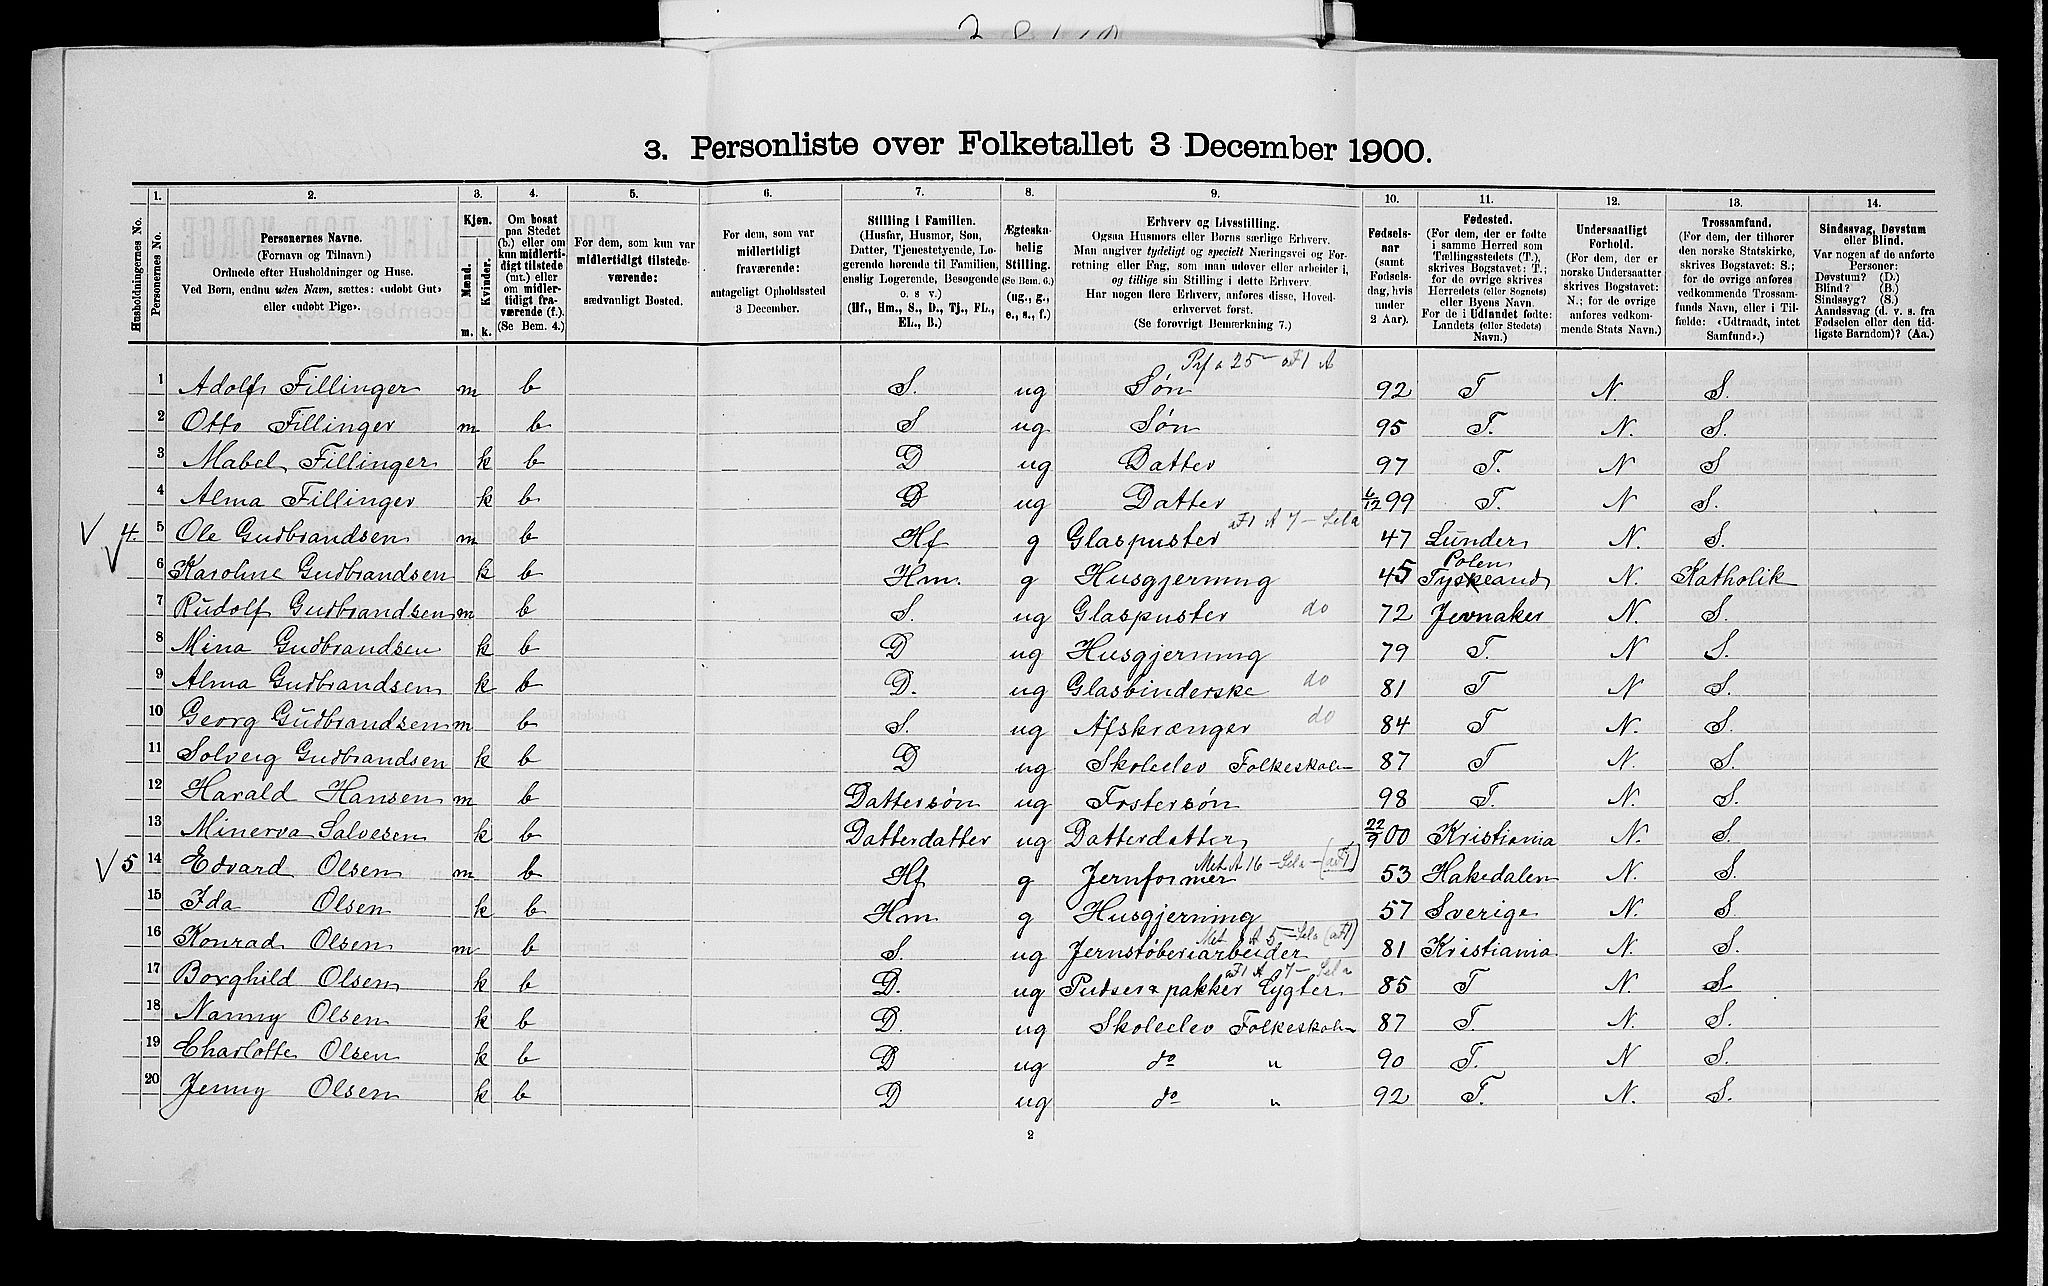 3. Personliste over Folketallet 3 December 1900.
Husholdningernes No.
1. Personernes No.
2. Personernes Navne. (Fornavn og Tilnavn) Ordnede efter Husholdninger og Huse. Ved Børn, endnu uden Navn, sættes: «udøbt Gut» eller «udøbt Pige».
3. Kjøn. Mænd. m. Kvinder. k.
4. Om bosat paa Stedet (b.) eller om kun midlertidigt tilstede (mt.) eller om midlertidigt fraværende (f.). (Se Bem. 4.)
5. For dem, som kun var midlertidigt tilstedeværende: sædvanligt Bosted.
6. For dem, som var midlertidigt fraværende: antageligt Opholdssted 3 December.
7. Stilling i Familien. (Husfar, Husmor, Søn, Datter, Tjenestetyende, Logerende hørende til Familien, enslig Logerende, Besøgende o. s. v.) (Hf., Hm., S., D., Tj., FL., EL., B.)
8. Ægteskabelig Stilling. (Se Bem. 6.) (ug., g., e., s., f.)
9. Erhverv og Livsstilling. Ogsaa Husmors eller Børns særlige Erhverv. Man angiver tydeligt og specielt Næringsvei og Forretning eller Fag, som man udøver eller arbeider i, og tillige sin Stilling i dette Erhverv. Har nogen flere Erhverv, anføres disse, Hovederhvervet først. (Se forøvrigt Bemærkning 7.)
10. Fødselsaar (samt Fødselsdag, hvis under 2 Aar).
11. Fødested. (For dem, der er fødte i samme Herred som Tællingsstedets (T.), skrives Bogstavet: T.; for de øvrige skrives Herredets (eller Sognets) eller Byens Navn. For de i Udlandet fødte: Landets (eller Stedets) Navn.)
12. Undersaatligt Forhold. (For dem, der er norske Undersaatter skrives Bogstavet: N.; for de øvrige anføres vedkommende Stats Navn.)
13. Trossamfund. (For dem, der tilhører den norske Statskirke, skrives Bogstavet: S.; for de øvrige anføres vedkommende Trossamfunds Navn, eller i Tilfælde: «Udtraadt, intet Samfund».)
14. Sindssvag, Døvstum eller Blind. Var nogen af de anførte Personer: Døvstum? (D.) Blind? (B.) Sindssyg? (S.) Aandssvag (d. v. s. fra Fødselen eller den tidligste Barndom)? (Aa.)
1 Adolf Fillinger m b S. ug Søn 92 T N. S.
2 Otto Fillinger m b S ug Søn 95 T. N. S.
3 Mabel Fillinger k b D ug Datter 97 T. N S
4 Alma Fillinger k b D ug Datter 6/12 99 T. N S.
4. 5 Ole Gudbrandsen m b Hf g Glaspuster 47 Lunder N. S.
6 Karoline Gudbrandsen k b Hm. g Husgjerning 45 Polen Tyskland N. Katholik
7 Rudolf Gudbrandsen m b S. ug Glaspuster do 72 Jevnaker N. S.
8 Mina Gudbrandsen k b D ug Husgjerning 79 T. N S.
9 Alma Gudbrandsen k b D. ug Glasbinderske do 81 T N S.
10 Georg Gudbrandsen m b S. ug Afskrænger do 84 T N. S.
11 Solveig Gudbrandsen k b D ug Skoleelev Folkeskolen 87 T N. S.
12 Harald Hansen m b Dattersøn ug Fostersøn 98 T. N. S.
13 Minerva Salvesen k b Datterdatter ug Datterdatter 22/9 00 Kristiania N. S.
5 14 Edvard Olsen m b Hf g Jernformer 53 Hakedalen N. S.
15 Ida Olsen k b Hm g Husgjerning 57 Sverige N. S
16 Konrad Olsen m b S. ug Jernstøberiarbeider 81 Kristiania N. S.
17 Borghild Olsen k b D. ug Pudser & pakker Lygter 85 T N. S
18 Nanny Olsen k b D. ug Skoleelev Folkeskolen 87 T. N. S.
19 Charlotte Olsen k b D ug do " 90 T. N S.
20 Jenny Olsen k b D ug do " 92 T. N. S.
2